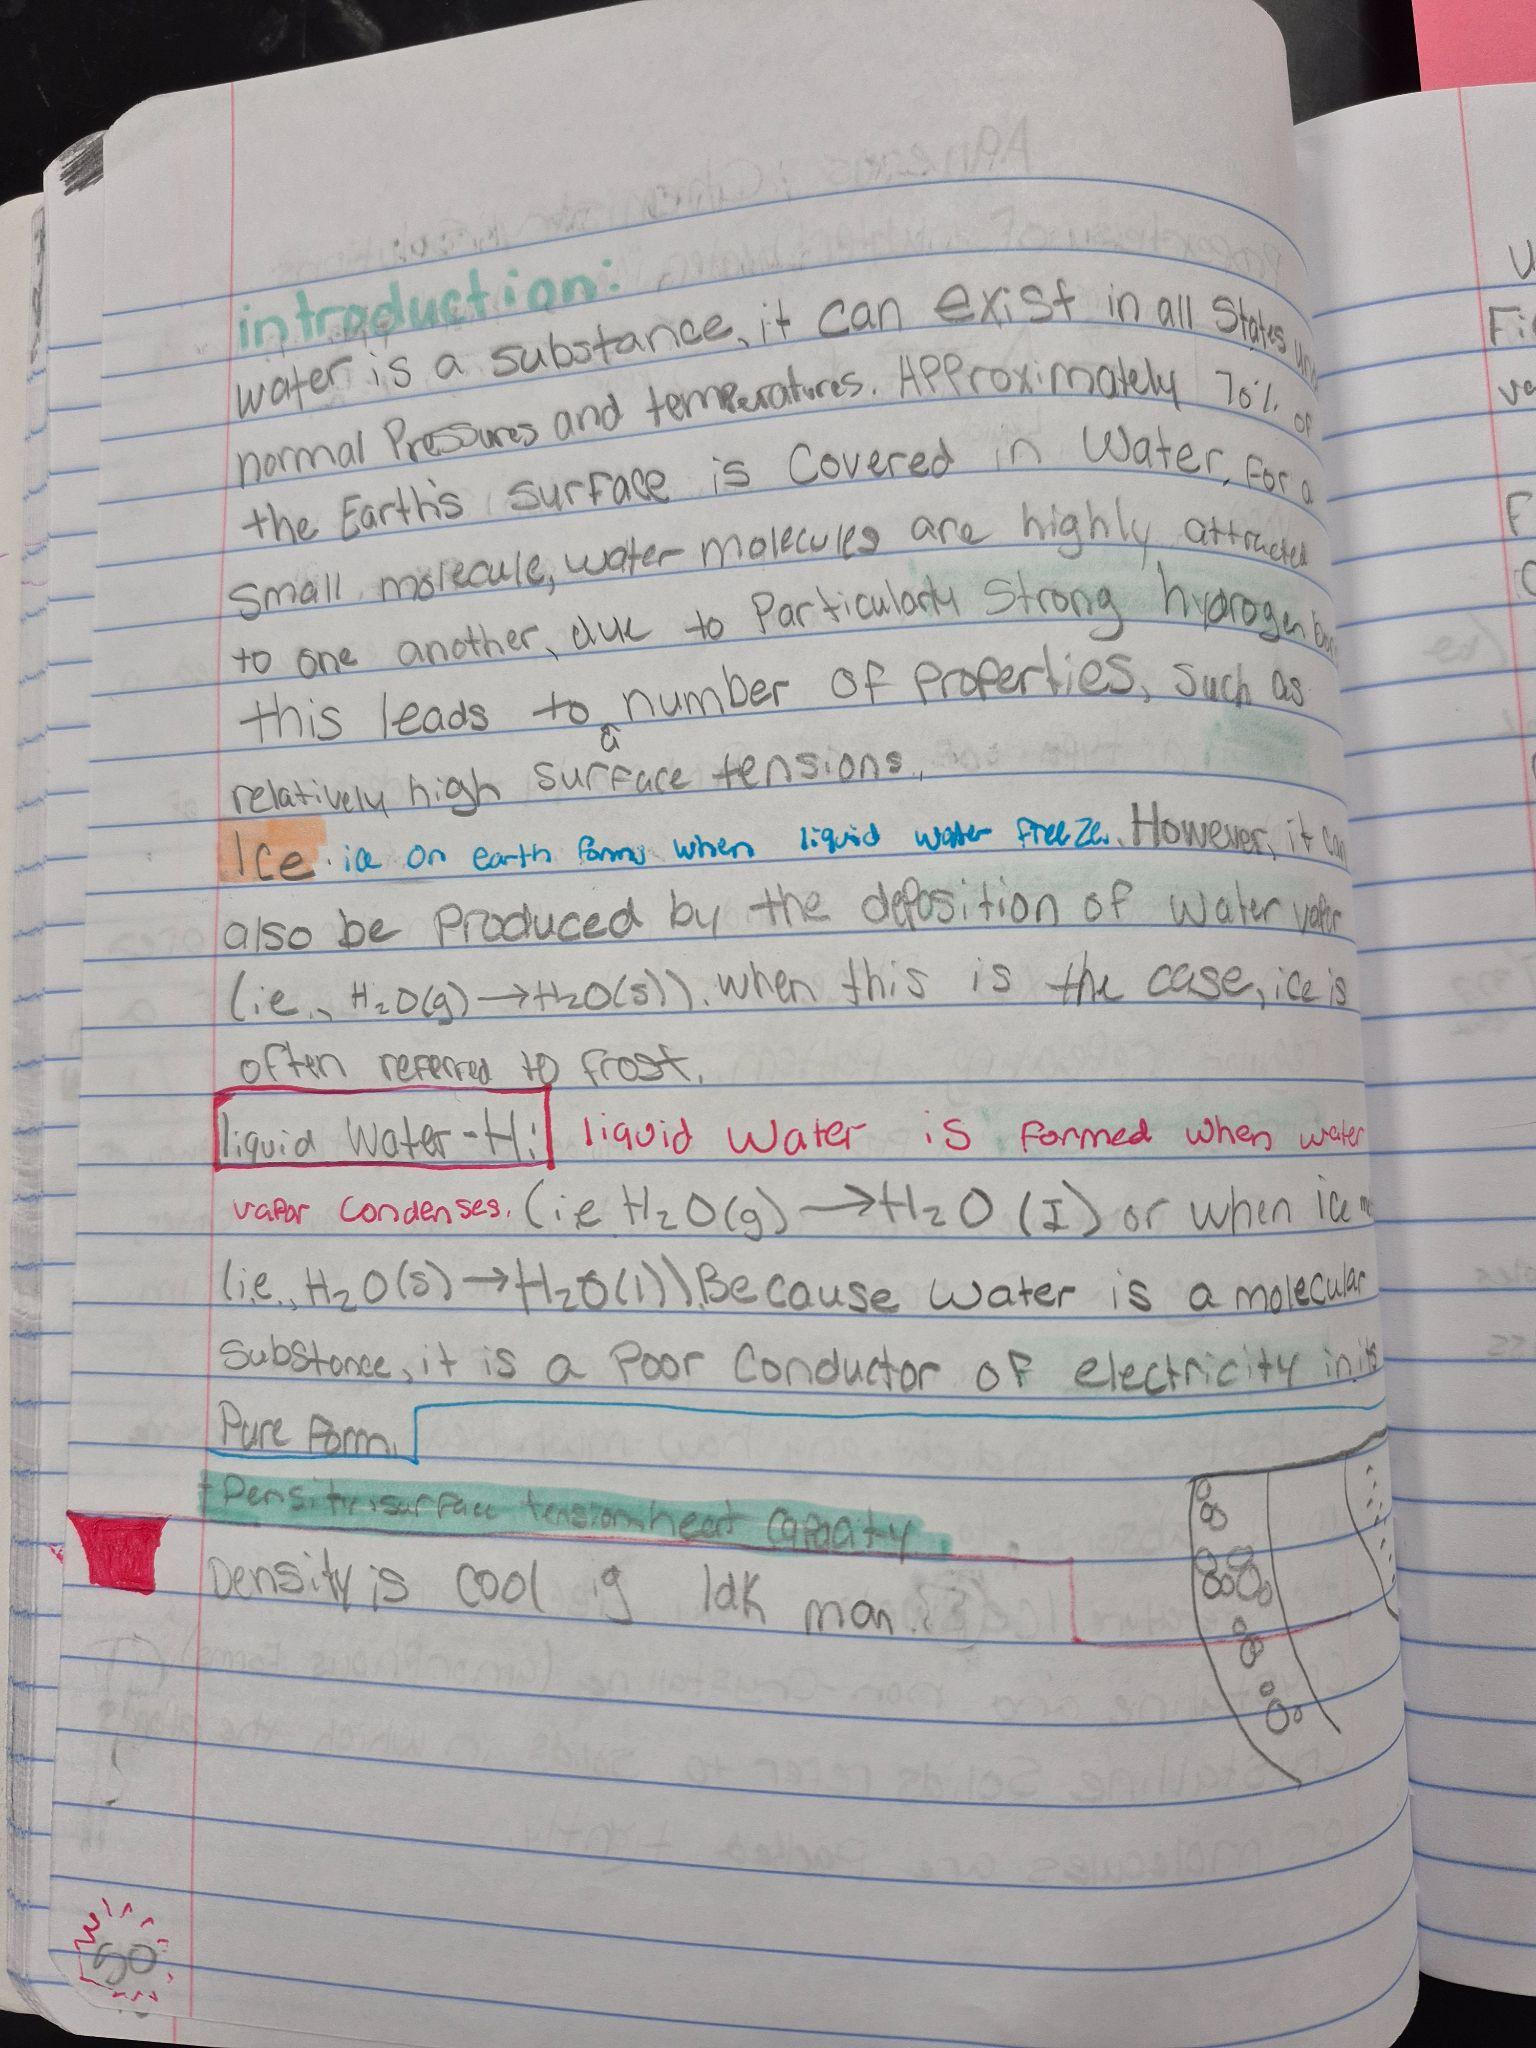 introduction:
water is a substance, it can exist in all States
normal Pressures and temperatures. Approximately 70% of
the Earth's surface is Covered in Water. For a
Small molecule, water molecules are highly attracted
to one another, due to Particularly Strong hydrogen
this leads to a number of properties, such as
relatively high surface tensions.
Ice. ice on earth forms when liquid water freeze. However, it can
also be Produced by the deposition of water vapor
(i.e., H₂O(g) → H₂O(s)). When this is the case, ice is
often referred to frost.
liquid Water - H: liquid Water is formed when water
vapor condenses. (i.e H₂O(g) → H₂O (I) or when ice
(i.e., H₂O(s) → H₂O(l)). Because water is a molecular
Substance, it is a Poor Conductor of electricity in its
Pure Form.
Density, surface tension, heat capacity
Density is cool ig Idk man.
50